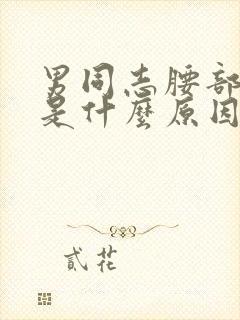 男同志腰部
是什麼原因
貳花